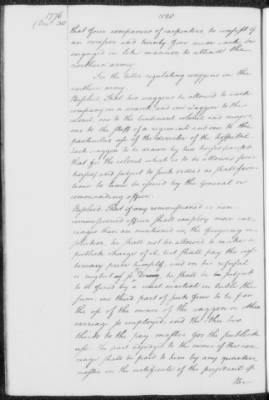 1776
(Decr 30
1020
that four companies of carpenters to consist of
an overseer and twenty four men each, be
engaged in like manner to attend the
northern army.
For the better regulating waggons in the
northern army
Resolved, That two waggons be allowed to each
company on a march, and one waggon to the
colonel, one to the lieutenant colonel and major,
one to the staff of a regiment and one to the
particular use of the director of the hospital
each waggon to be drawn by two horses except
that for the colonel which is to be allowed four
horses and subject to such orders as shall from
time to time be issued by the General or
commanding officer
Resolved, That if any commissioned or non
commissioned officer shall employ more car-
riages than are mentioned in the foregoing re-
solution, he shall not be allowed to make a
publick charge of it, but shall pay the cus-
tomary price himself, and on his refusal
or neglect so to do, he shall be subject
to be fined by a court martial in treble the
sum, one third part of such fine to be for
the use of the owner of the waggon or other
carriage so employed, and the other two
thirds to the pay master for the publick
use. The part assigned to the owner of the car-
riage shall be paid to him by any quarter
master on the certificate of the president of
the